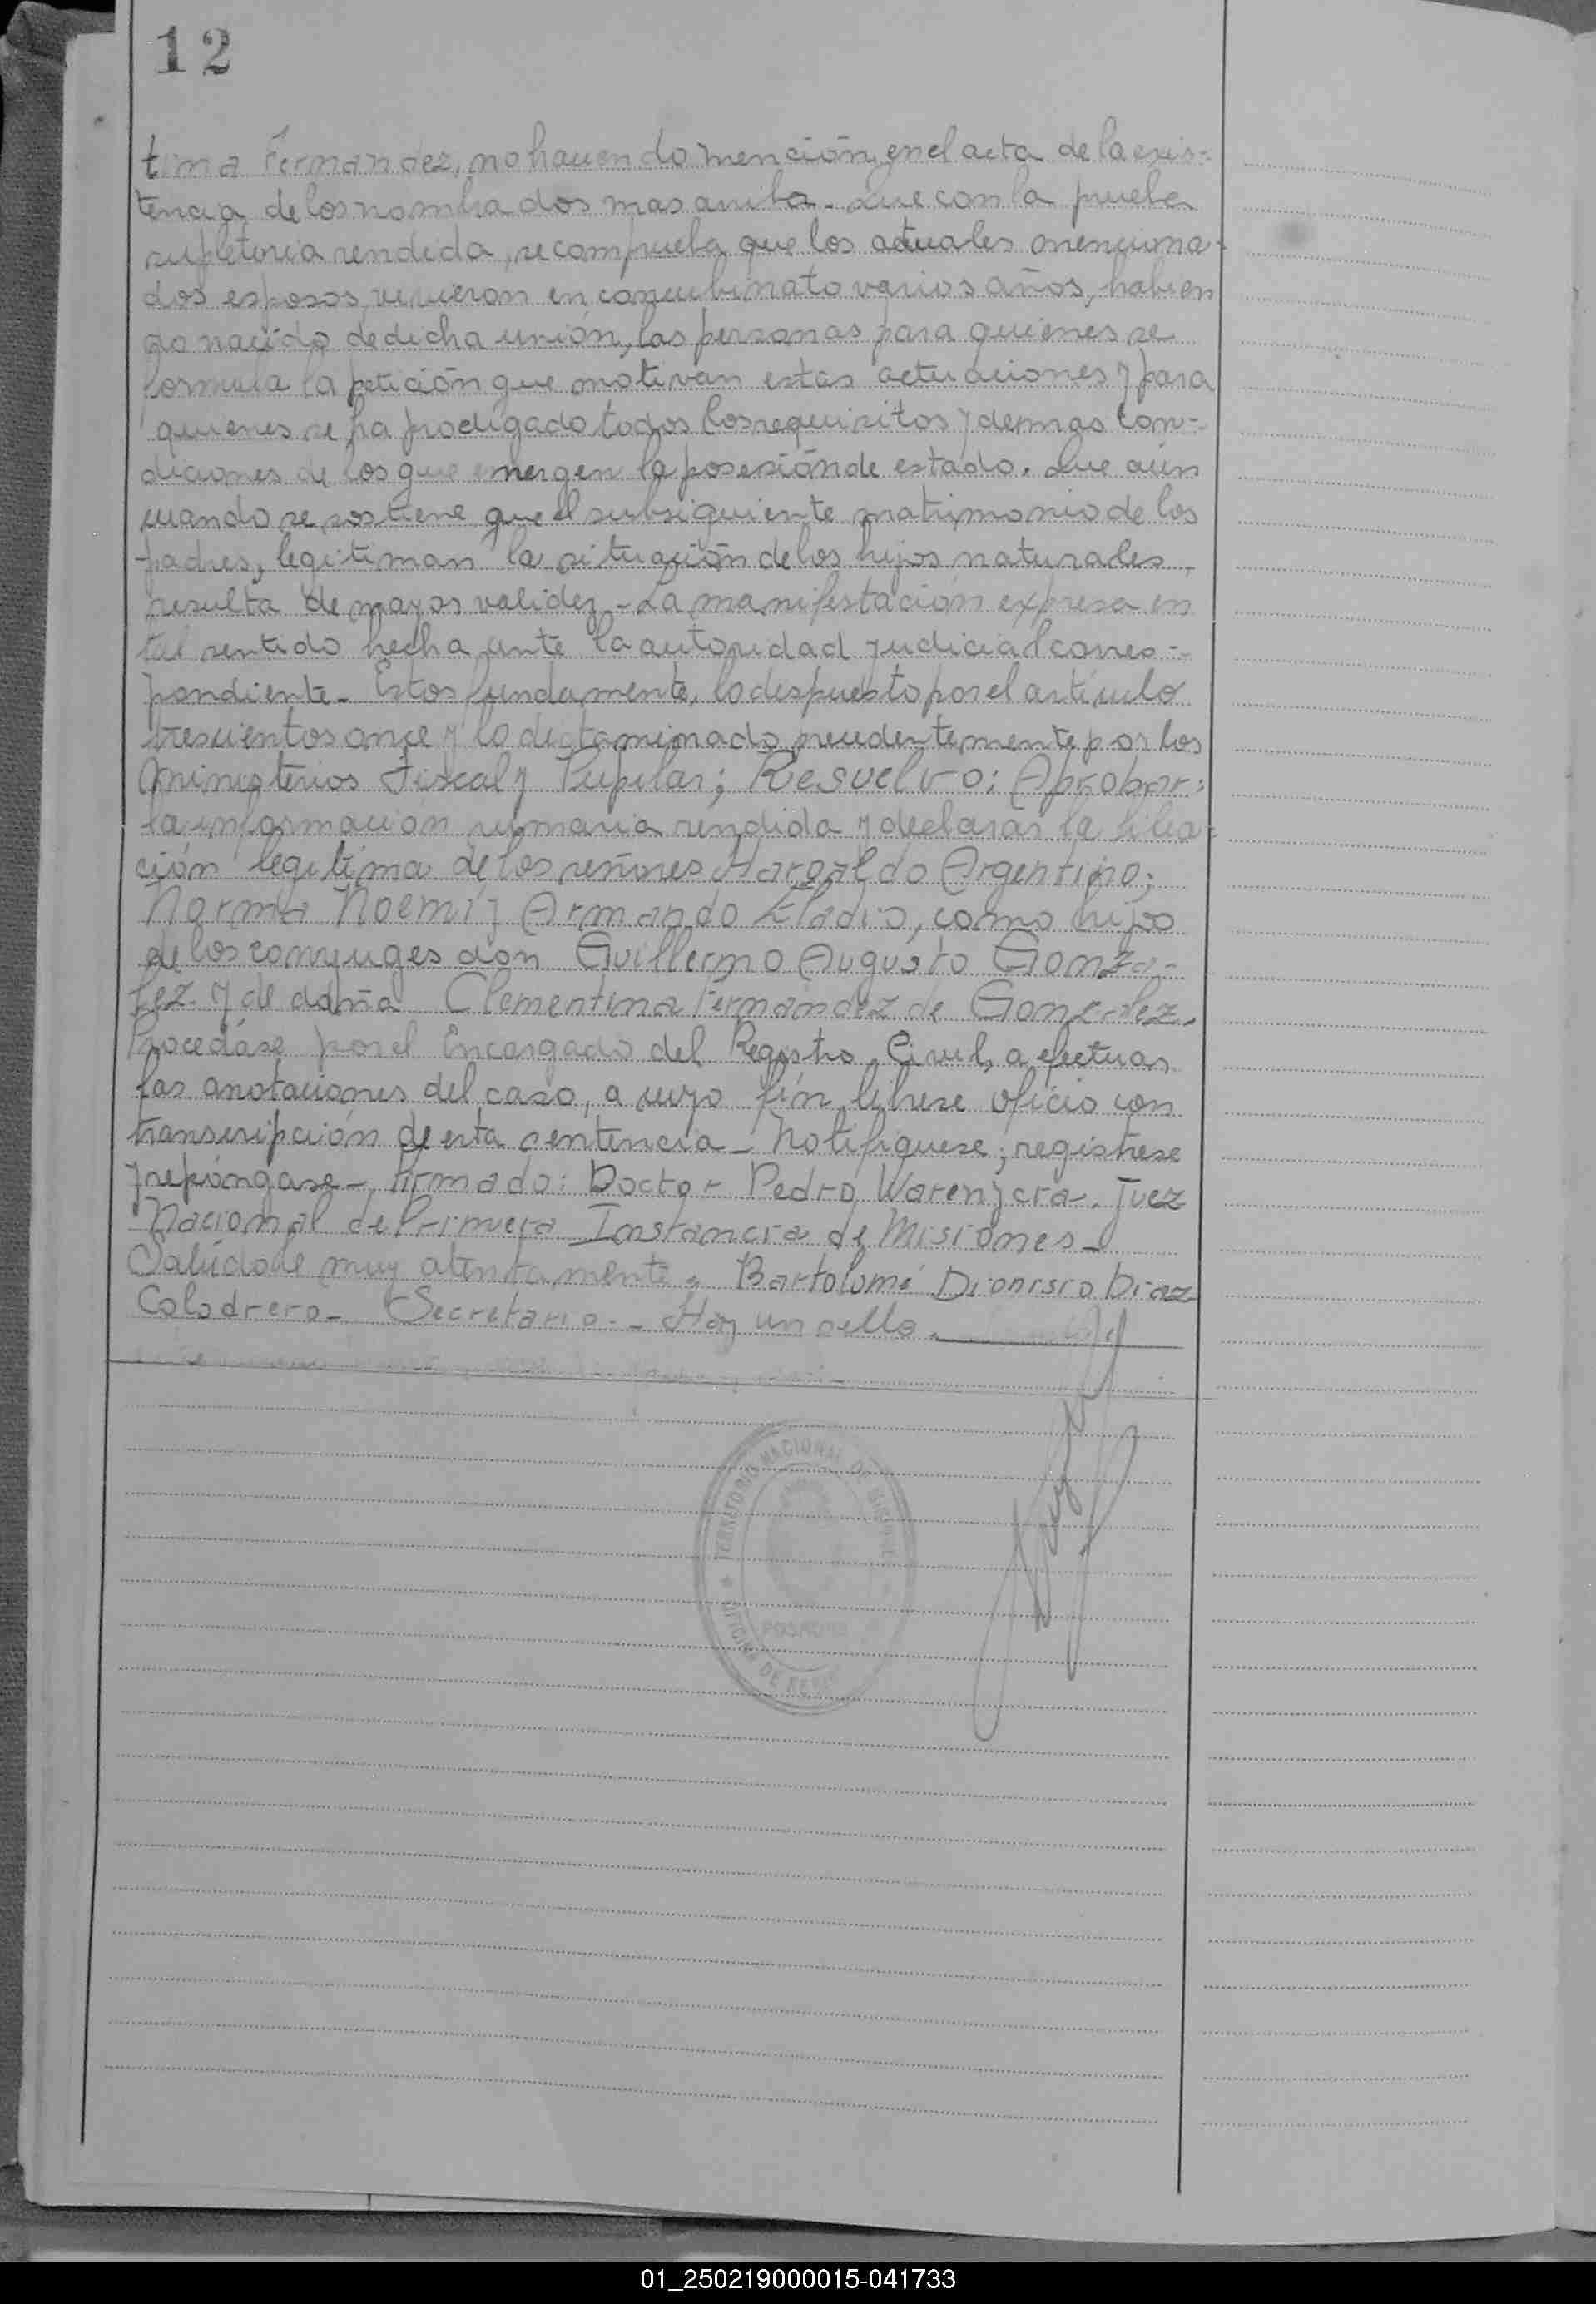 12
tina Fernandez, no haciendo mención, en el acta de la exis-
tencia de los nombrados mas arriba. Que con la prueba
supletoria rendida, se comprueba que los actuales menciona-
dos esposos vivieron en concubinato varios años, habien
do nacido de dicha unión, las personas para quienes se
formula la petición que motivan estas actuaciones y para
quienes se ha prodigado todos los requisitos y demas con-
diciones de los que emergen la posesión de estado. Que aún
cuando se sostiene que el subsiguiente matrimonio de los
padres, legitiman la situación de los hijos naturales,
resulta de mayor validez - La manifestación expresa en
tal sentido hecha ante la autoridad judicial corres-
pondiente - Estos fundamento, lo dispuesto por el artículo
trescientos once y lo dictaminado precedentemente por los
Ministerios Fiscal y Pupilar; Resuelvo: Aprobar:
la información sumaria rendida y declarar la filia-
ción legitima de los señores Argentino;
Norma Noemí y Armando Eladio, como hijos
de los conyuges don Guillermo Augusto Gonza-
lez. y de doña Clementina Fernández de Gonzalez.
Procedáse por el Encargado del Registro Civil, a efectuar
las anotaciones del caso, a cuyo fin, librese oficio con
transcripción de esta sentencia - Notifiquese; registrese
y repóngase -, Firmado: Doctor Pedro Warenycra. Juez
Nacional de Primera Instancia de Misiones -
Salúdole muy atentamente. Bartolomé Dionisio Diaz
Colodrero - Secretario. - Hay un sello.
TERRITORIO NACIONAL DE MISIONES
POSADAS
OFICINA DE
01_250219000015-041733